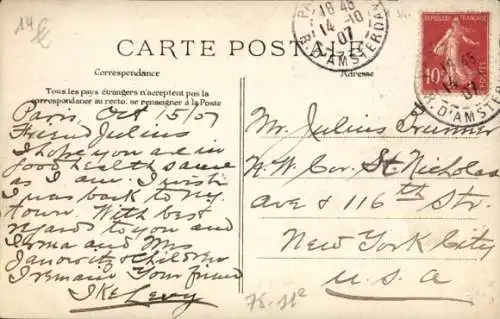 14 €
18 45
14-10
07
R. D'AMSTERDAM
CARTE POSTALE
Correspondance
Tous les pays étrangers n'acceptent pas la
correspondance au recto. se renseigner à la Poste
Paris, Oct 15/07
Friend Julius
I hope you are in
good health same
as I am. I wish
I was back to my
town. With best
regards to you and
Irma and Mrs
Janowitz & Children
I remain Your friend
Ike Levy
Adresse
REPUBLIQUE FRANÇAISE
10
18 45
14
07
R. D'AMSTERDAM
Mr. Julius
N.W. Cor. St Nicholas
Ave & 116th Str.
New York City
U.S.A
75-